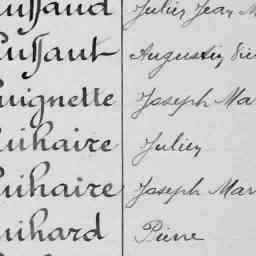 uſſaud Julien Jean M
uſſaut Augustin Pie
uignette Joseph Mar
uihaire Julien
uihaire Joseph Mar
uihard Pierre